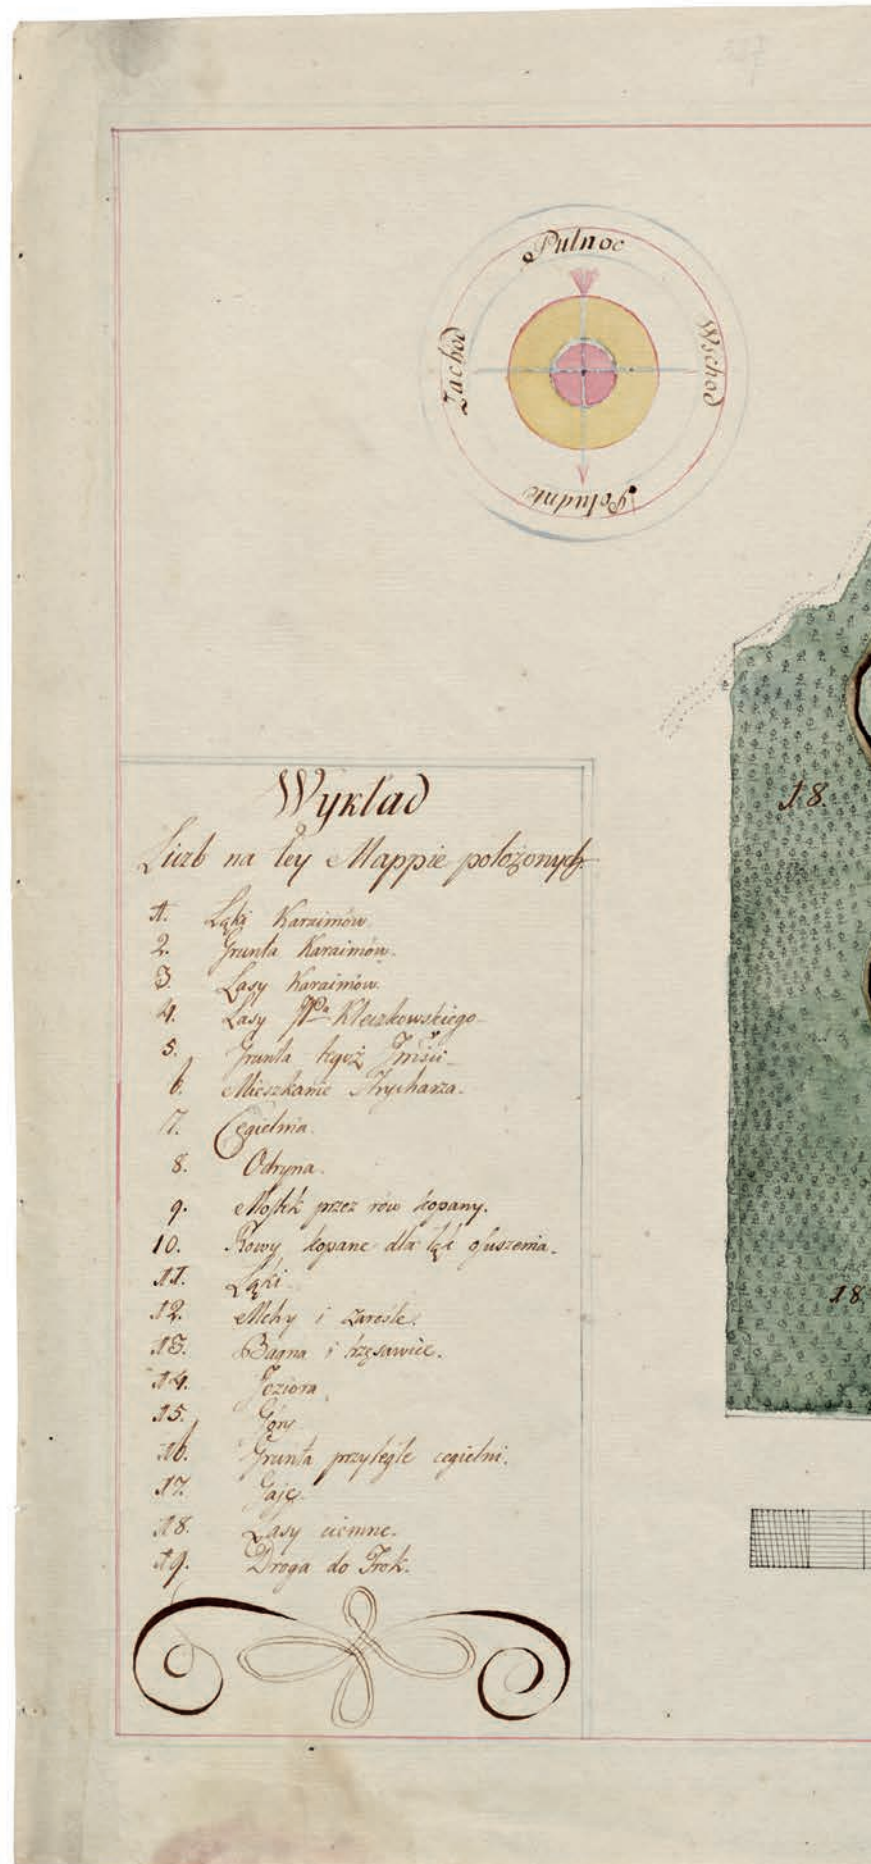 Pułnoc
Zachod
Wschod
Południe
Wykład
Liczb na tey Mappie położonych.
1. Łąki Karaimów.
2. Grunta Karaimów.
3. Lasy Karaimów.
4. Lasy JPa Kleczkowskiego
5. Grunta tegoż
6. Mieszkanie Strycharza.
7. Cegielnia.
8. Odryna.
9. Mostek przez rów kopany.
10. Rowy kopane dla łąk osuszenia.
11. Łąki.
12. Mchy i zarośle.
13. Bagna i trzęsawice.
14. Jeziora.
15. Góry
16. Grunta przyległe cegielni.
17. Gaje.
18. Lasy ciemne.
19. Droga do Trok.
18.
18